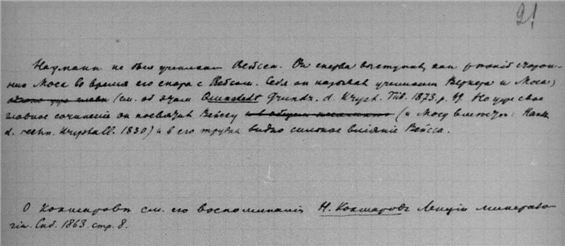 21
Науманн не был учеником Вейсса. Он сперва выступил, как
Моса во время его спора с Вейсом. Себя он называл учеником Вернера и Моса,
(см. об этом Quenstedt Grundr. d. Kryst. Tüb. 1873. p. Но уже свое
главное сочинение он посвятил Вейссу (и Мосу вместе: Naum.
d. rechn. Krystall. 1830) и в его трудах видно сильное влияние Вейсса.
О Кокшарове см. его воспоминания Н. Кокшаровъ Лекции минерало-
гiи. Спб. 1863. стр. 8.